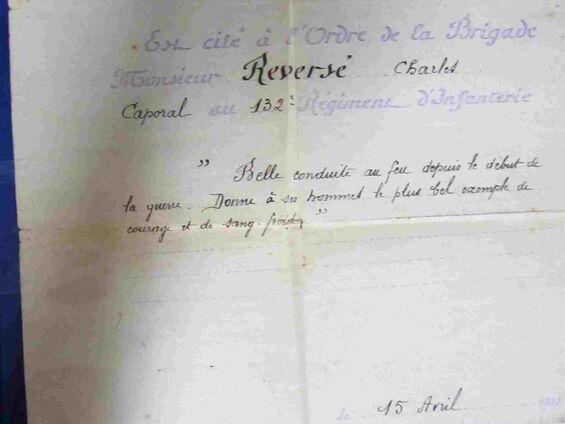 Est cité à l'Ordre de la Brigade
Monsieur Reversé Charles
Caporal au 132e Régiment d'Infanterie
" Belle conduite au feu depuis le début de
la guerre. Donne à ses hommes le plus bel exemple de
courage et de sang-froid "
le 15 Avril